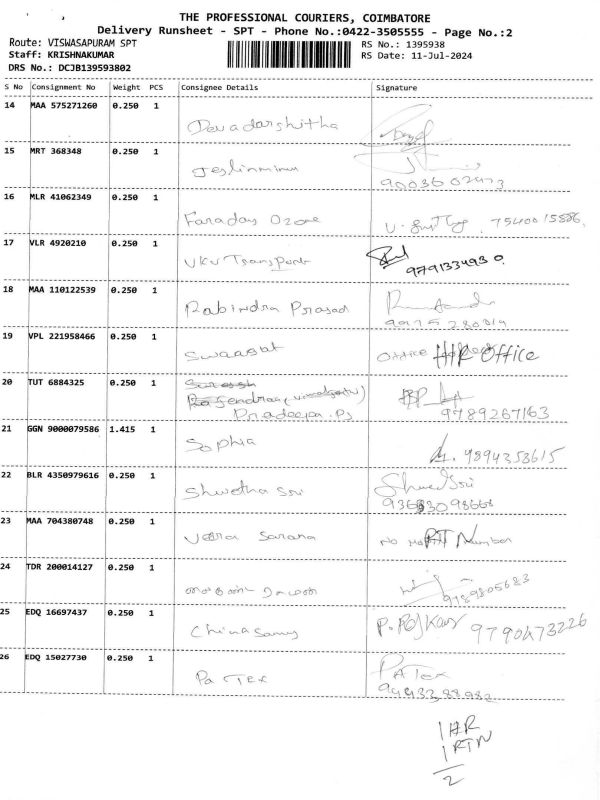 THE PROFESSIONAL COURIERS, COIMBATORE
Delivery Runsheet - SPT - Phone No.:0422-3505555 - Page No.:2
Route: VISWASAPURAM SPT RS No.: 1395938
Staff: KRISHNAKUMAR RS Date: 11-Jul-2024
DRS No.: DCJB139593802
S No Consignment No Weight PCS Consignee Details Signature
14 MAA 575271260 0.250 1
Devadarshitha
15 MRT 368348 0.250 1
Jeslinminu
9003602473
16 MLR 41062349 0.250 1
Faraday Ozone 7540015886
17 VLR 4920210 0.250 1
VKV Transport 9791334930
18 MAA 110122539 0.250 1
Rabindra Prasad
9975280019
19 VPL 221958466 0.250 1
Swaagat Office HR Office
20 TUT 6884325 0.250 1
Suresh
Rajendran
Pradeepa.Ps 9789267163
21 GGN 9000079586 1.415 1
Sophia 9894353615
22 BLR 4350979616 0.250 1
Shwetha Sri Shwetha Sri
23 MAA 704380748 0.250 1
Veera Sarana No RT Number
24 TDR 200014127 0.250 1
9789805683
25 EDQ 16697437 0.250 1
Chinasamy P. Rajkumar 9790473226
26 EDQ 15027730 0.250 1
Pa Tex PATex
9443388982
1 HR
1 RTN
2